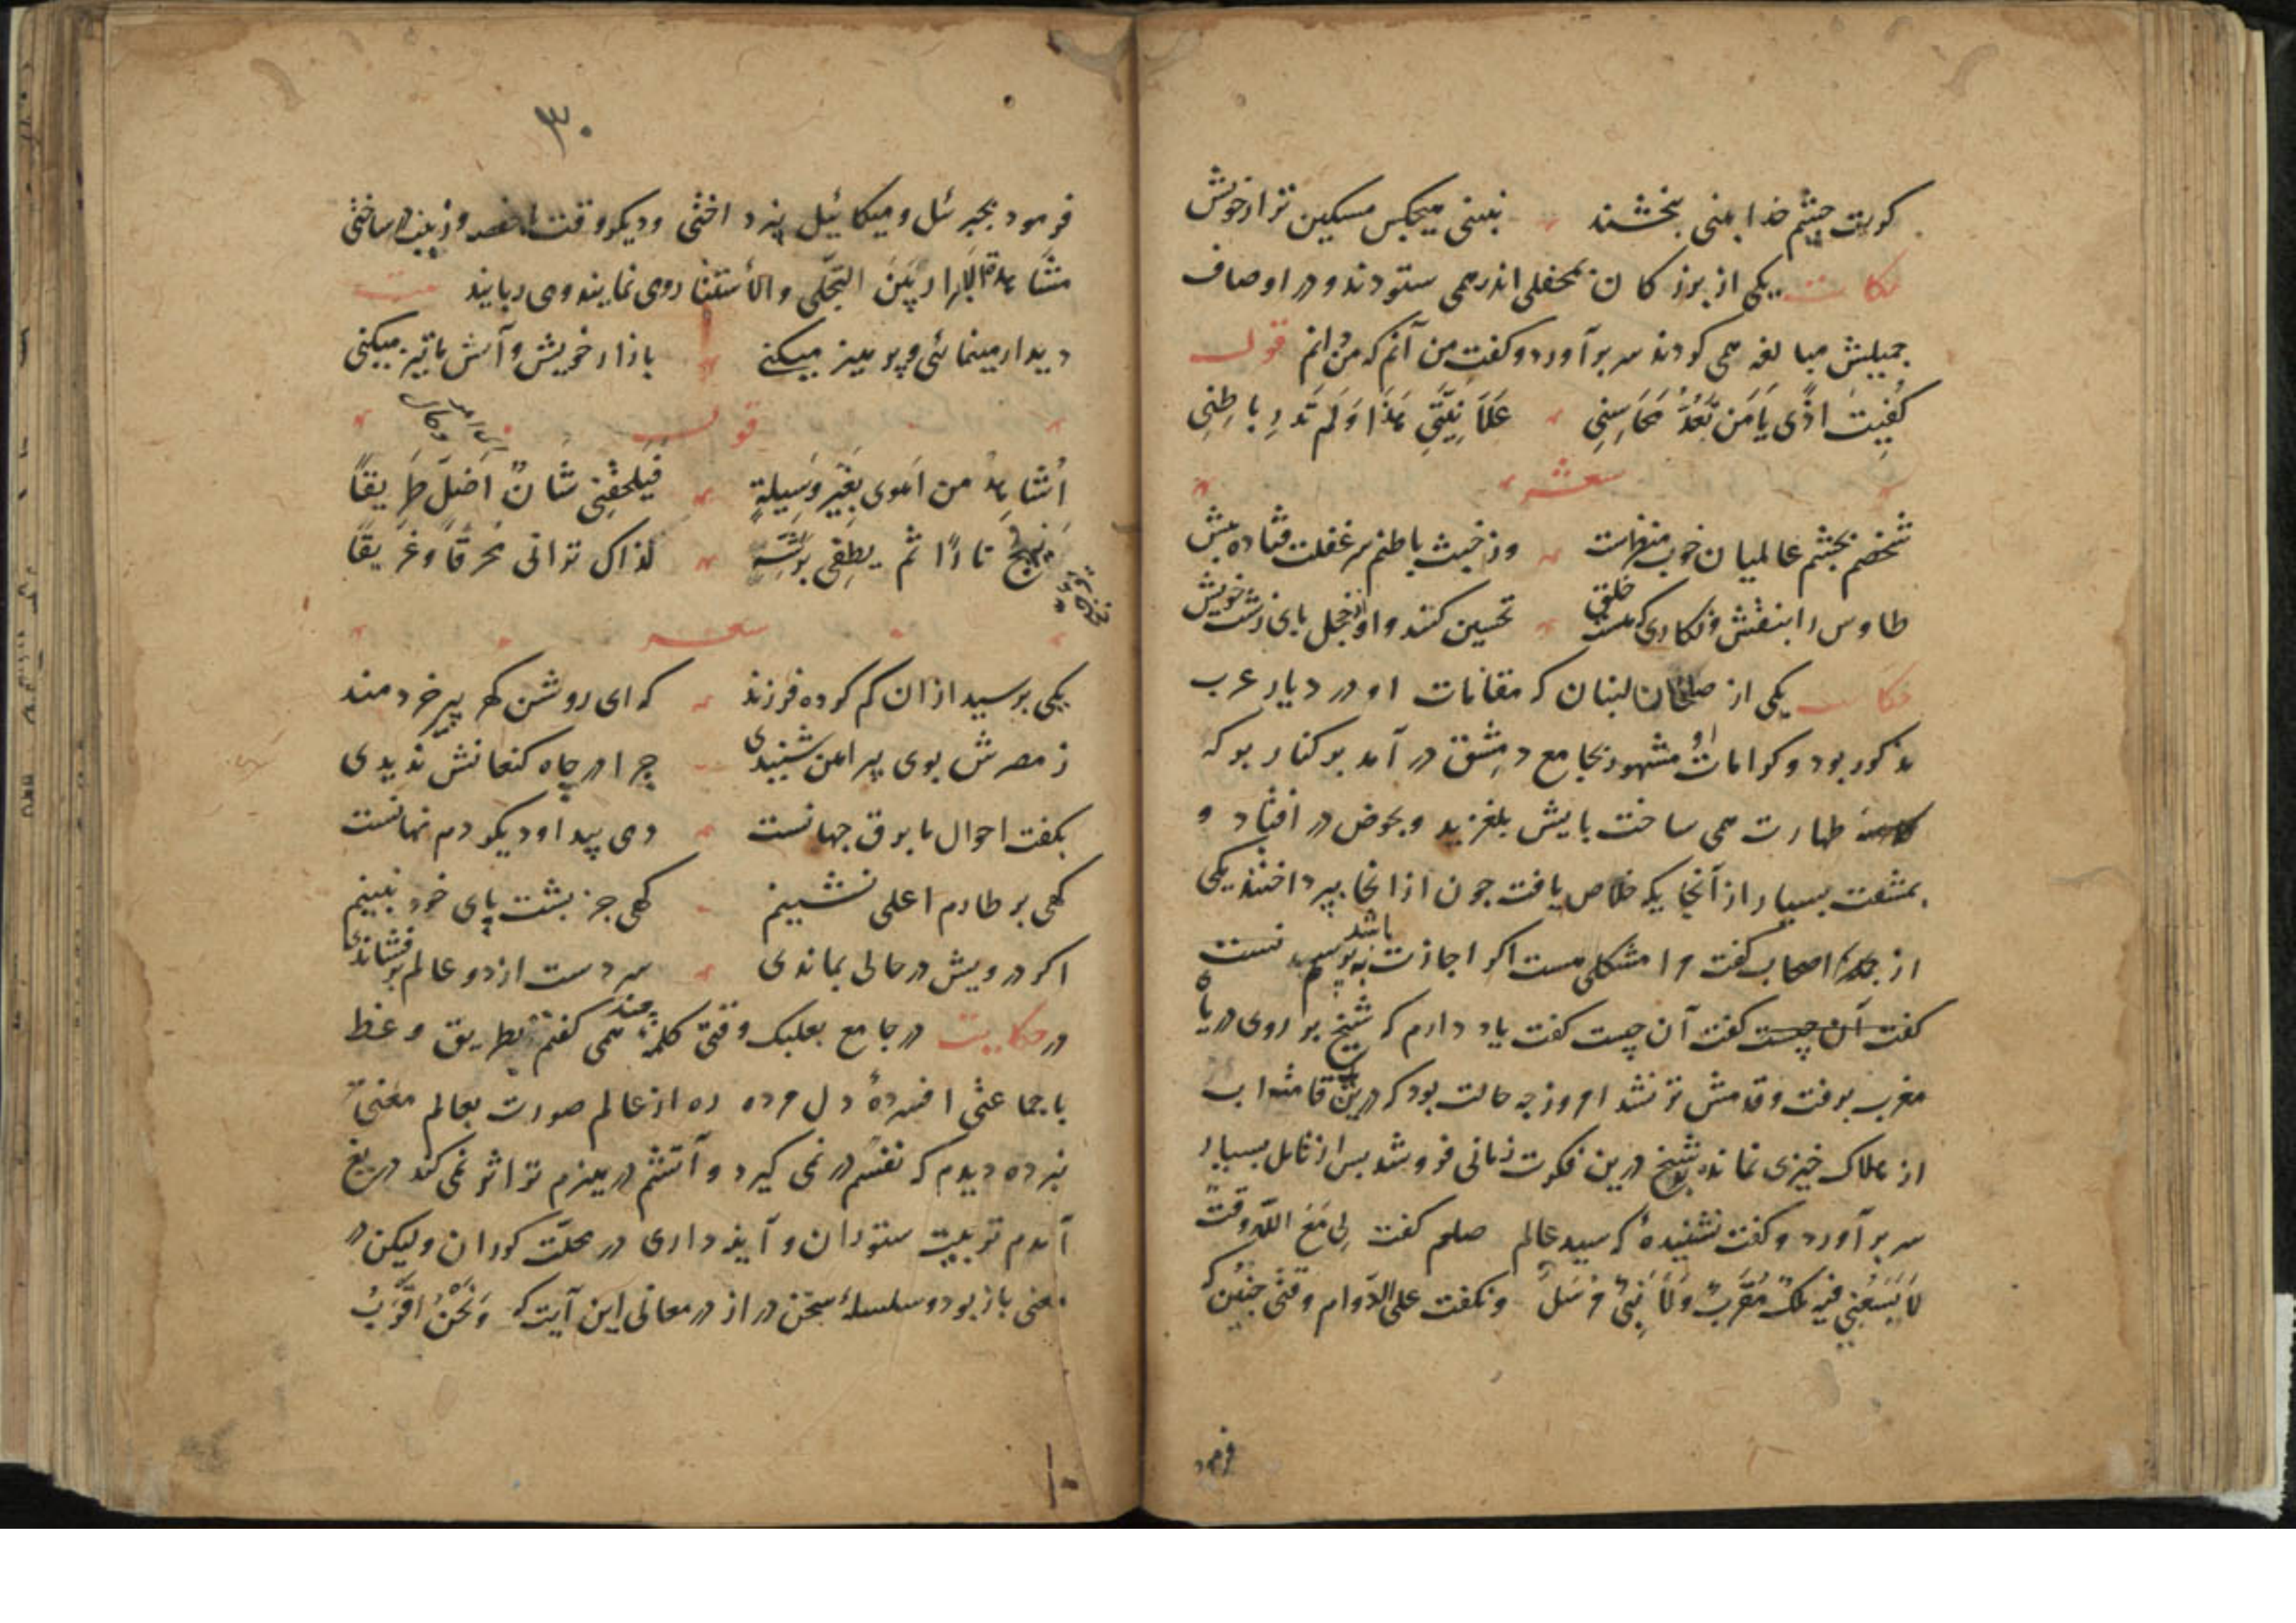 کورت چشم خدا بینی بخشند نبینی هیچکس مسکین تر از خویش
حکایت یکی از بزرکان بمحفلی اندر همی ستودند و در اوصاف
جمیلش مبالغه همی کردند سر برآورد و کفت من آنم که من دانم قول
کُفِیتَ اذًی یَا مَن تَعُدُّ مَحَاسِنِی عَلَانِیَّتِی هٰذَا وَلَم تَدرِ بَاطِنِی
شعر
شخصم بچشم عالمیان خوب منظرست وز خبث باطنم سر غفلت فتاده پیش
طاوس را بنقش و نکاری که هست خلق تحسین کنند و او خجل از پای زشت خویش
حکایت یکی از صلحان لبنان که مقامات او در دیار عرب
مذکور بود و کرامات او مشهور بجامع دمشق در آمد بر کنار برکه
طهارت همی ساخت پایش بلغزید و بحوض در افتاد و
بمشقت بسیار از آنجایکه خلاص یافت چون از انجا بپرداختند یکی
از جمله اصحاب کفت مرا مشکلی هست اکر اجازت باشد بپرسم
کفت آن چیست کفت آن چیست کفت یاد دارم که شیخ بر روی دریاء
مغرب برفت و قدمش تر نشد امروز چه حالت بود که درین قامتْ اب
از هلاک چیزی نمانده بود شیخ درین فکرت زمانی فرو شد پس از تامل بسیار
سر برآورد و کفت نشنیدهٔ که سید عالم صلعم کفت لِی مَعَ اللّه وقتٌ
لَا یَسَعُنِی فیه ملکٌ مُقَرَّبٌ وَلَا نَبِیٌّ مُرْسَلٌ و نکفت علی الدّوام وقتی چنین که
فرمود
۳۰
فرمود بجبرئل و میکائیل نپرداختی و دیکر وقت با حفصه و زینب در ساختی
مشَاهدة الابرار بَینَ التجلّی والاستتار می نمایند و می ربایند بیت
دیدار مینمائی و پرهیز میکنی بازار خویش و آتش ما تیز میکنی
قول
اُشَاهِدُ من اَهوی بِغَیر وَسِیلةٍ فَیَلحَقُنِی شَانٌ اَضَلّ طَریقاً
نارًا ثم یطفی بَرشّةٍ لذاک ترانی مُحرَقاً وغَریقاً
شعر
یکی پرسید از ان کم کرده فرزند که ای روشن کهر پیر خردمند
ز مصرش بوی پیراهن شنیدی چرا در چاه کنعانش ندیدی
بکفت احوال ما برق جهانست دمی پیدا و دیکر دم نهانست
کهی بر طارم اعلی نشینیم کهی جز پشت پای خود نبینیم
اکر درویش در حالی بماندی سر دست از دو عالم برفشاندی
در حکایت در جامع بعلبک وقتی کلمهٔ چند همی کفتم بطریق وعظ
با جماعتی افسردهٔ دل مرده ره از عالم صورت بعالم معنی
نبرده دیدم که نفسم در نمی کیرد و آتشم در هیزم تر اثر نمی کند دریغ
آمدم تربیت ستوران و آینه داری در محلّت کوران ولیکن در
معنی باز بود و سلسلهٔ سخن دراز در معانی این آیت که وَنَحنُ اَقرَبُ